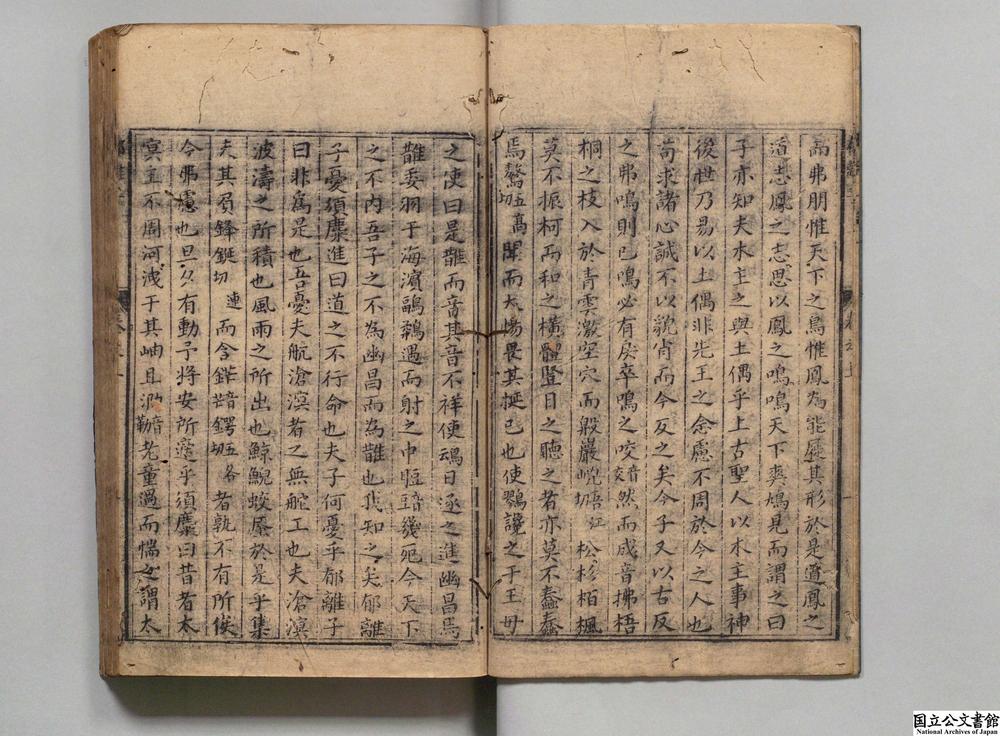 高弗朋惟天下之鳥惟鳳為能屣其形於是道鳳之
道志鳳之志思以鳳之鳴鳴天下奭鳩見而謂之曰
子亦知夫木主之與土偶乎上古聖人以木主事神
後世乃易以土偶非先王之念慮不周於今之人也
苟求諸心誠不以貌肖而今反之矣今子又以古反
之弗鳴則已鳴必有戾卒鳴之咬音交然而成音拂梧
桐之枝入於青雲激空穴而殷巖㟎切 松杉栢楓
莫不振柯而和之橫體豎目之聽之者亦莫不蠢蠢
焉鷔五高切聞而大惕畏其挻己也使鷚讒之于王母
之使曰是鵲而音其音不祥使日逐之進幽昌焉
鵲委羽于海濱鶝鶔遇而射之中脰音豆幾死今天下
之不內吾子之不為幽昌而為鵲也我知之矣郁離
子憂須麋進曰道之不行命也夫子何憂乎郁離子
曰非為是也吾憂夫航滄溟者之無舵工也夫滄溟
波濤之所積也風雨之所出也鯨鯢蛟蜃於是乎集
夫其負鋒鋋切連而含鍔五各切者孰不有所俟
今弗慮也旦夕有動予將安所適乎須麋曰昔者太
冥主不周河洩于其岫且泐音勒老童過而惴之謂太
国立公文書館
National Archives of Japan